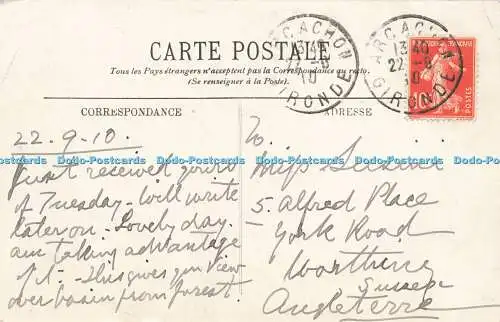 CARTE POSTALE
Tous les Pays étrangers n'acceptent pas la Correspondance au recto.
(Se renseigner à la Poste).
ARCACHON
13 40
22 -9
10
GIRONDE
ARCACHON
13 40
22 -9
10
GIRONDE
POSTES
CORRESPONDANCE
22.9.10.
Just received yours
of Tuesday - will write
later on. Lovely day.
am taking advantage
of it. This gives you view
over basin from forest.
ADRESSE
To
Miss
5. Alfred Place
York Road
Worthing
Sussex
Angleterre
Dodo-Postcards Dodo-Postcards Dodo-Postcards Dodo-Postcards